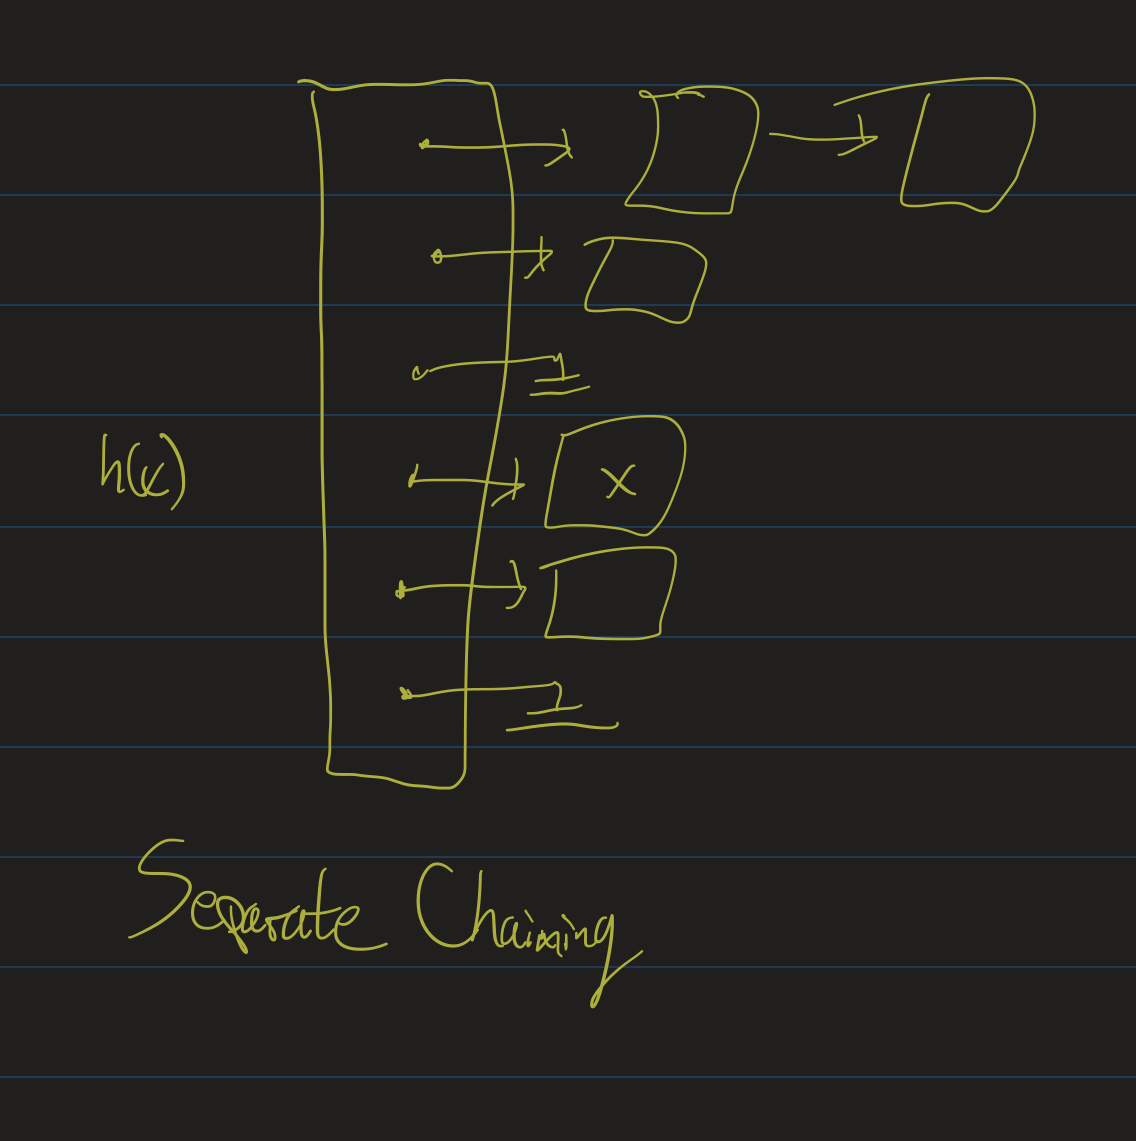 h(x)
x
Separate Chaining